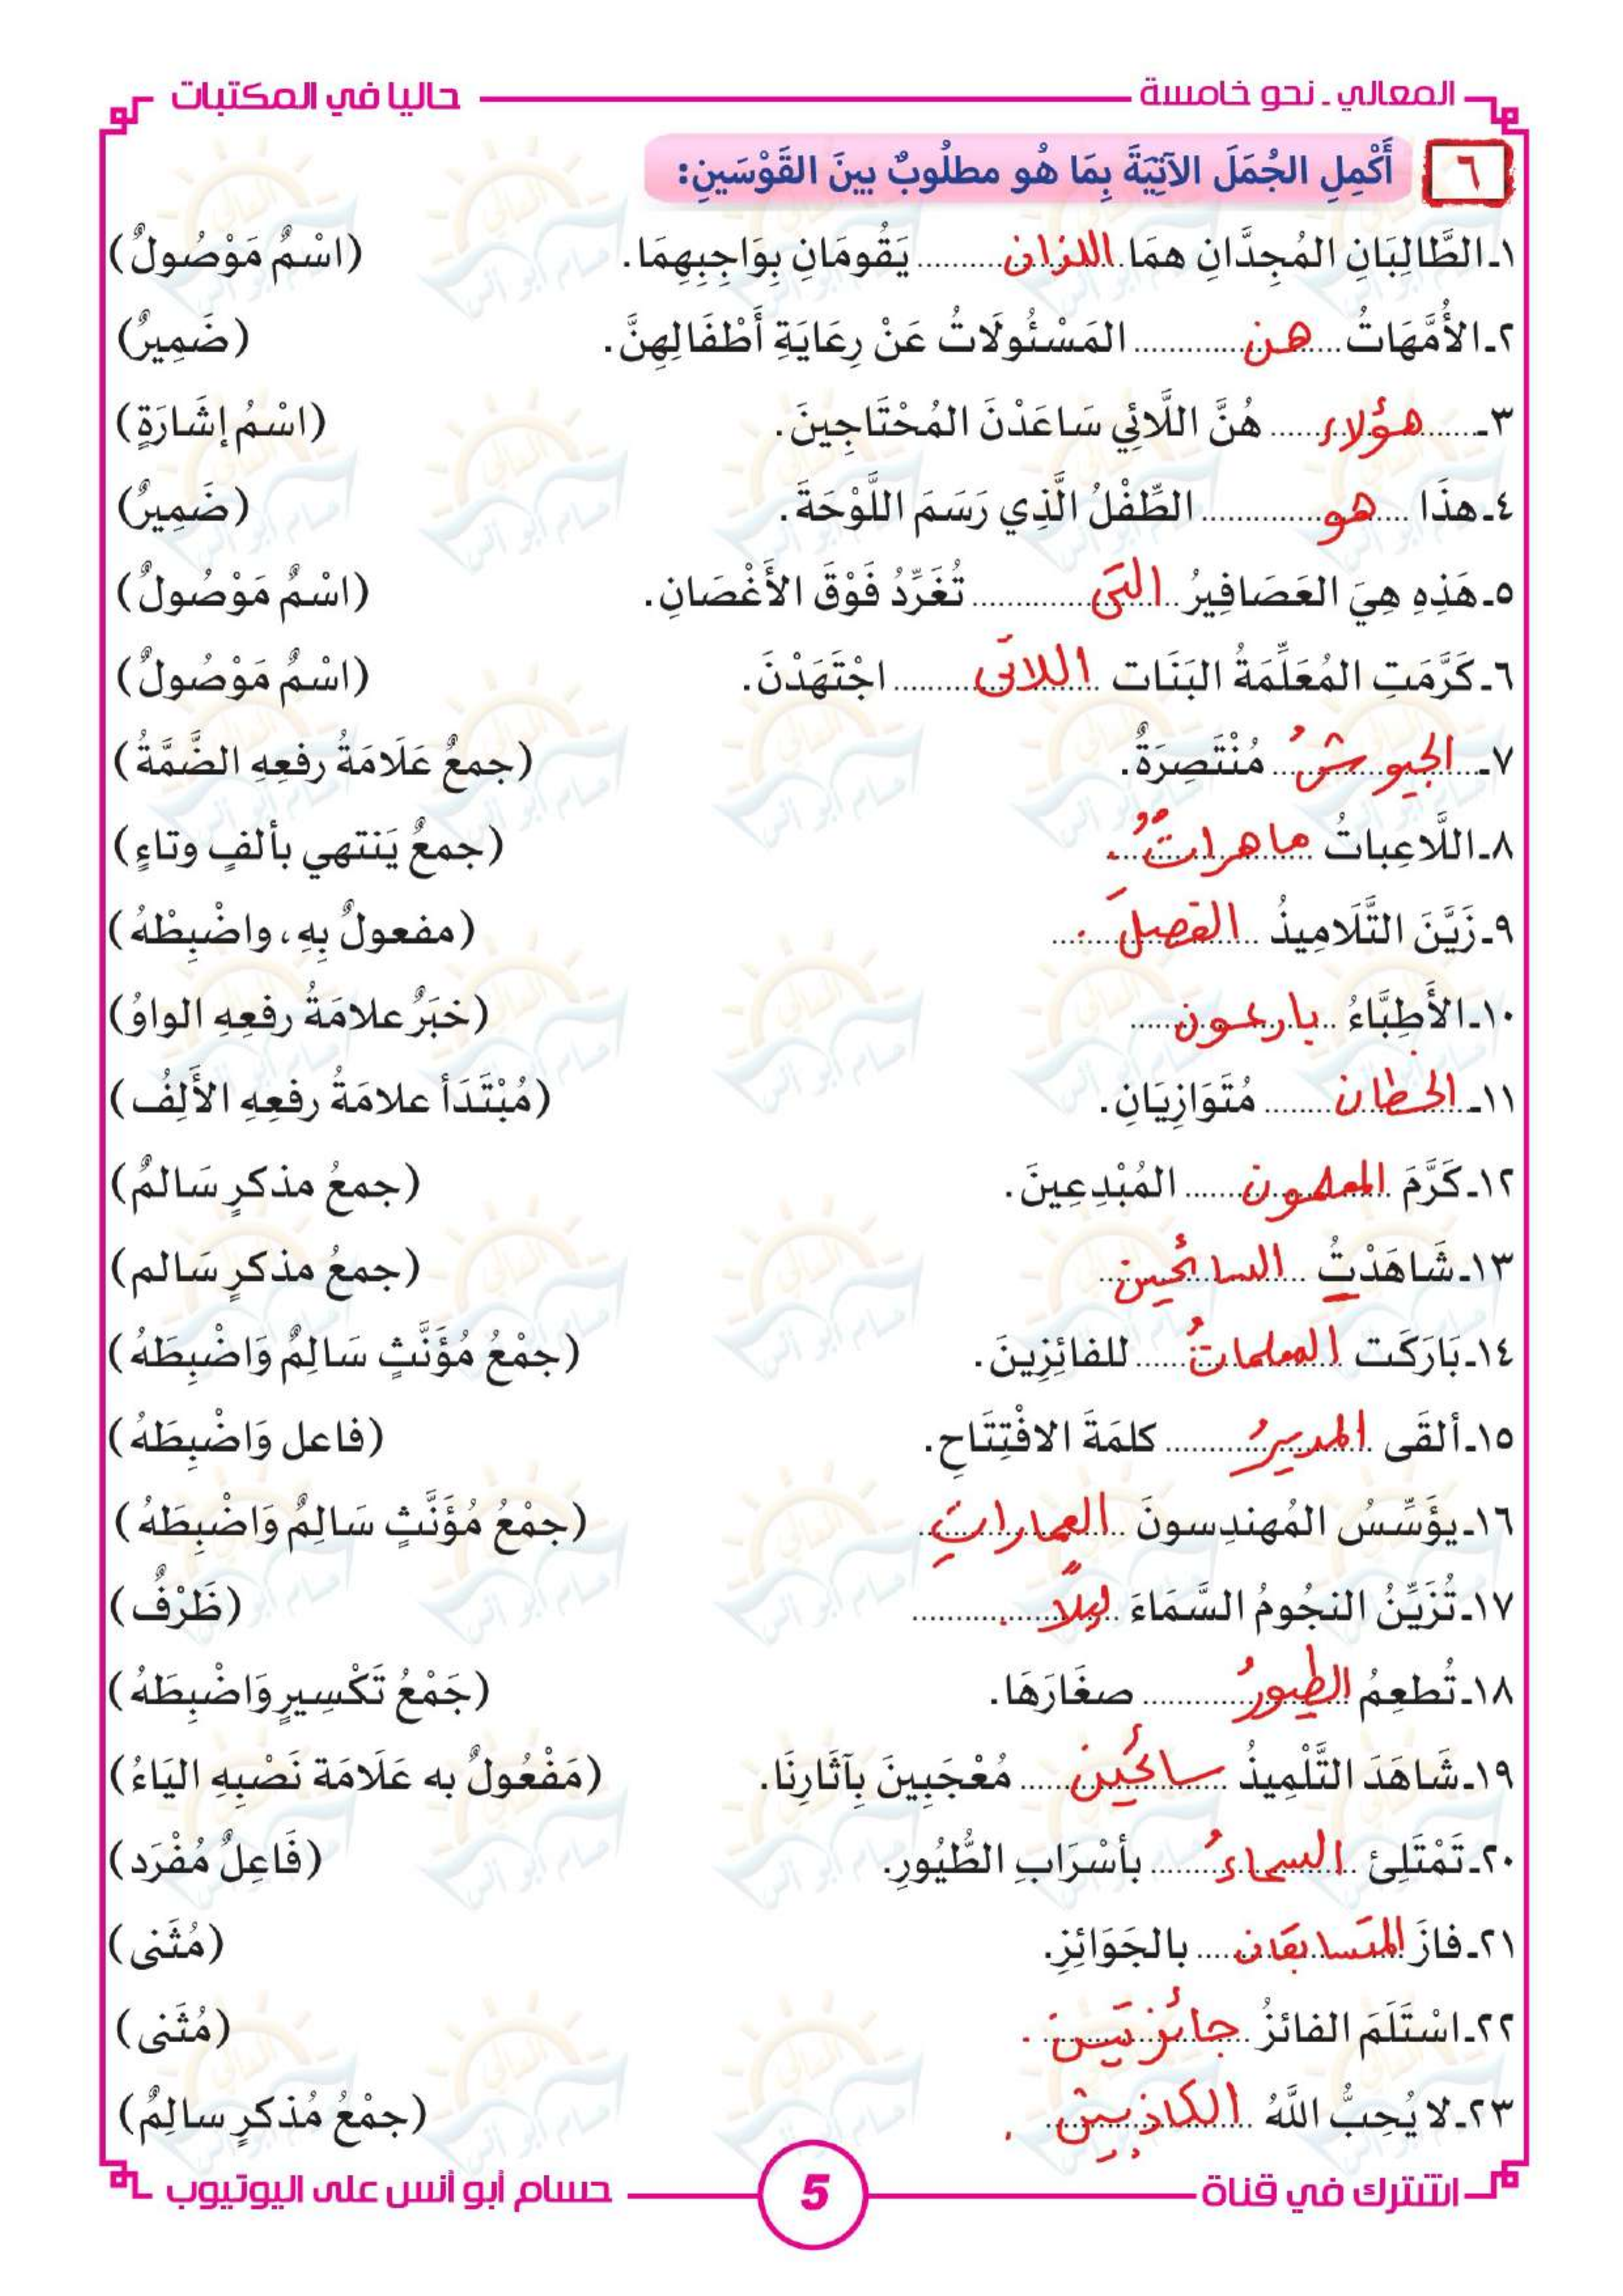 المعالي - نحو خامسة
حاليا في المكتبات
٦ أَكْمِلِ الجُمَلَ الآتِيَةَ بِمَا هُو مطلُوبٌ بينَ القَوْسَينِ:
١ـ الطَّالِبَانِ المُجِدَّانِ همَا اللذان يَقُومَانِ بِوَاجِبِهِمَا. (اسْمٌ مَوْصُولٌ)
٢ـ الأُمَّهَاتُ هن المَسْئُولَاتُ عَنْ رِعَايَةِ أَطْفَالِهِنَّ. (ضَمِيرٌ)
٣ـ هؤلاء هُنَّ اللَّائِي سَاعَدْنَ المُحْتَاجِينَ. (اسْمُ إشَارَةٍ)
٤ـ هذَا هو الطِّفْلُ الَّذِي رَسَمَ اللَّوْحَةَ. (ضَمِيرٌ)
٥ـ هَذِهِ هِيَ العَصَافِيرُ التى تُغَرِّدُ فَوْقَ الأَغْصَانِ. (اسْمٌ مَوْصُولٌ)
٦ـ كَرَّمَتِ المُعَلِّمَةُ البَنَات اللاتى اجْتَهَدْنَ. (اسْمٌ مَوْصُولٌ)
٧ـ الجيوشُ مُنْتَصِرَةٌ. (جمعٌ عَلَامَةُ رفعِهِ الضَّمَّةُ)
٨ـ اللَّاعِباتُ ماهراتٌ. (جمعٌ يَنتهي بألفٍ وتاءٍ)
٩ـ زَيَّنَ التَّلَامِيذُ الفصلَ. (مفعولٌ بِهِ، واضْبِطْهُ)
١٠ـ الأَطِبَّاءُ بارعون (خبَرٌ علامَةُ رفعِهِ الواوُ)
١١ـ الخطان مُتَوَازِيَانِ. (مُبْتَدَأ علامَةُ رفعِهِ الأَلِفُ)
١٢ـ كَرَّمَ المعلمون المُبْدِعِينَ. (جمعُ مذكرٍ سَالمٌ)
١٣ـ شَاهَدْتُ السائحين (جمعُ مذكرٍ سَالم)
١٤ـ بَارَكَت المعلماتُ للفائِزِينَ. (جمْعُ مُؤَنَّثٍ سَالِمٌ وَاضْبِطَهُ)
١٥ـ ألقَى المديرُ كلمَةَ الافْتِتَاحِ. (فاعل وَاضْبِطَهُ)
١٦ـ يؤَسِّسُ المُهندِسونَ العماراتِ (جمْعُ مُؤَنَّثٍ سَالِمٌ وَاضْبِطَهُ)
١٧ـ تُزَيِّنُ النجُومُ السَّمَاءَ ليلًا. (ظَرْفٌ)
١٨ـ تُطعِمُ الطيورُ صغَارَهَا. (جَمْعُ تَكْسِيرٍ وَاضْبِطَهُ)
١٩ـ شَاهَدَ التَّلْمِيذُ سائحين مُعْجَبِينَ بِآثَارِنَا. (مَفْعُولٌ به عَلَامَة نَصْبِهِ اليَاءُ)
٢٠ـ تَمْتَلِئ السماءُ بأسْرَابِ الطُّيُورِ. (فَاعِلٌ مُفْرَد)
٢١ـ فازَ المتسابقان بالجَوَائِزِ. (مُثَنى)
٢٢ـ اسْتَلَمَ الفائزُ جائزتين. (مُثَنى)
٢٣ـ لا يُحِبُّ اللَّهُ الكاذبين. (جمْعُ مُذكرٍ سالِمٌ)
اشترك في قناة
5
حسام أبو أنس على اليوتيوب